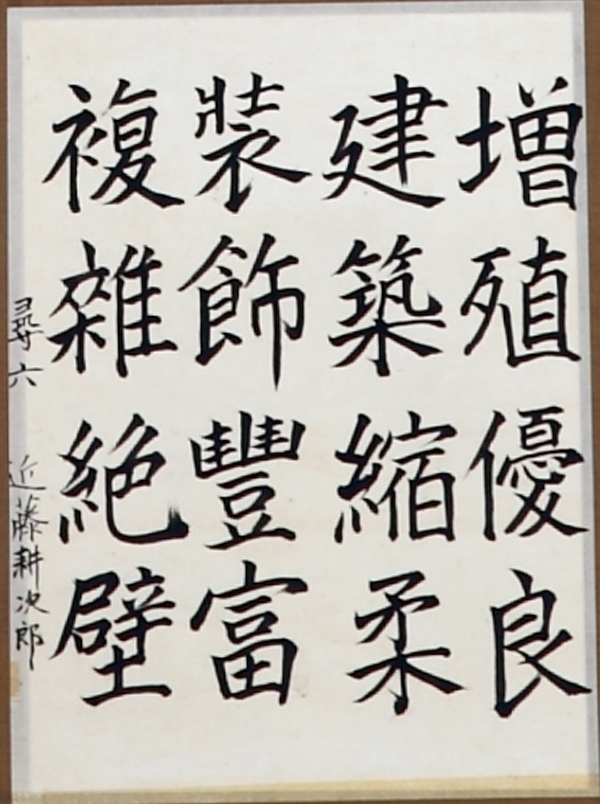 増殖優良
建築縮柔
装飾豐富
複雑絶壁
尋六 近藤耕次郎